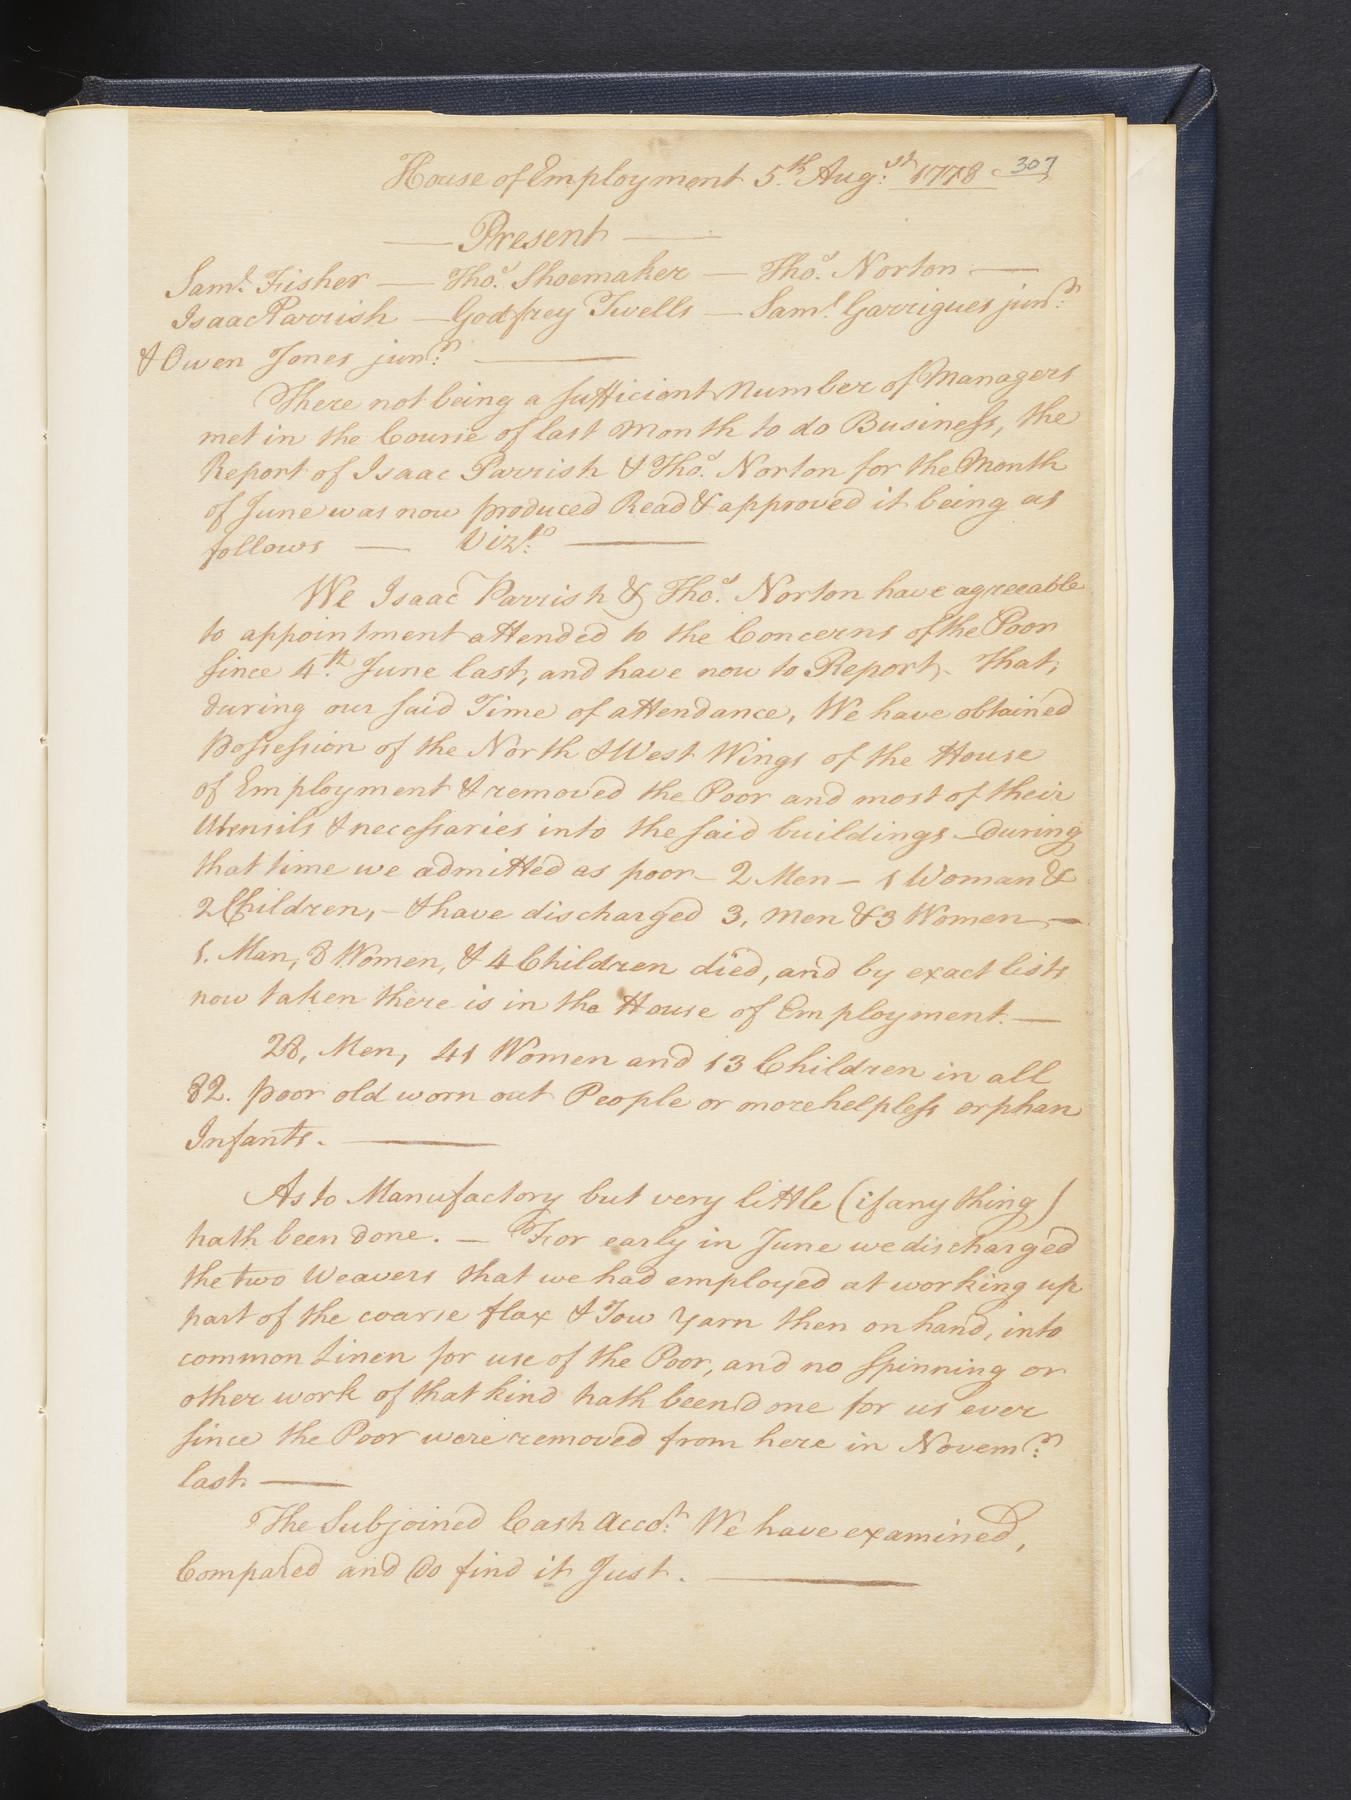 House of Employment 5.th Aug:st 1778 307
— Present —
Saml. Fisher — Thos. Shoemaker — Thos. Norton —
Isaac Parrish — Godfrey Twells — Saml. Garrigues junr:
& Owen Jones junr: —
There not being a sufficient Number of Managers
met in the Course of last Month to do Business, the
Report of Isaac Parrish & Thos. Norton for the Month
of June was now produced Read & approved it being as
follows — Vizt: —
We Isaac Parrish & Thos. Norton have agreeable
to appointment attended to the Concerns of the Poor
since 4.th June last, and have now to Report. That,
during our said Time of attendance, We have obtained
Possession of the North & West Wings of the House
of Employment & removed the Poor and most of their
Utensils & necessaries into the said buildings — During
that time we admitted as poor — 2 Men — 1 Woman &
2 Children, — & have discharged 3, men & 3 Women, —
1. Man, 8 Women, & 4 Children died, and by exact lists
now taken there is in the House of Employment. —
28, Men, 41 Women and 13 Children in all
82. poor old worn out People or more helpless orphan
Infants. —
As to Manufactory but very little (if any thing)
hath been done. — For early in June we discharged
the two Weavers that we had employed at working up
part of the coarse flax & Tow Yarn then on hand, into
common Linen for use of the Poor, and no spinning or
other work of that kind hath been done for us ever
since the Poor were removed from here in Novemr:
last. —
The Subjoined Cash Accot: We have examined,
Compared and Do find it Just. —